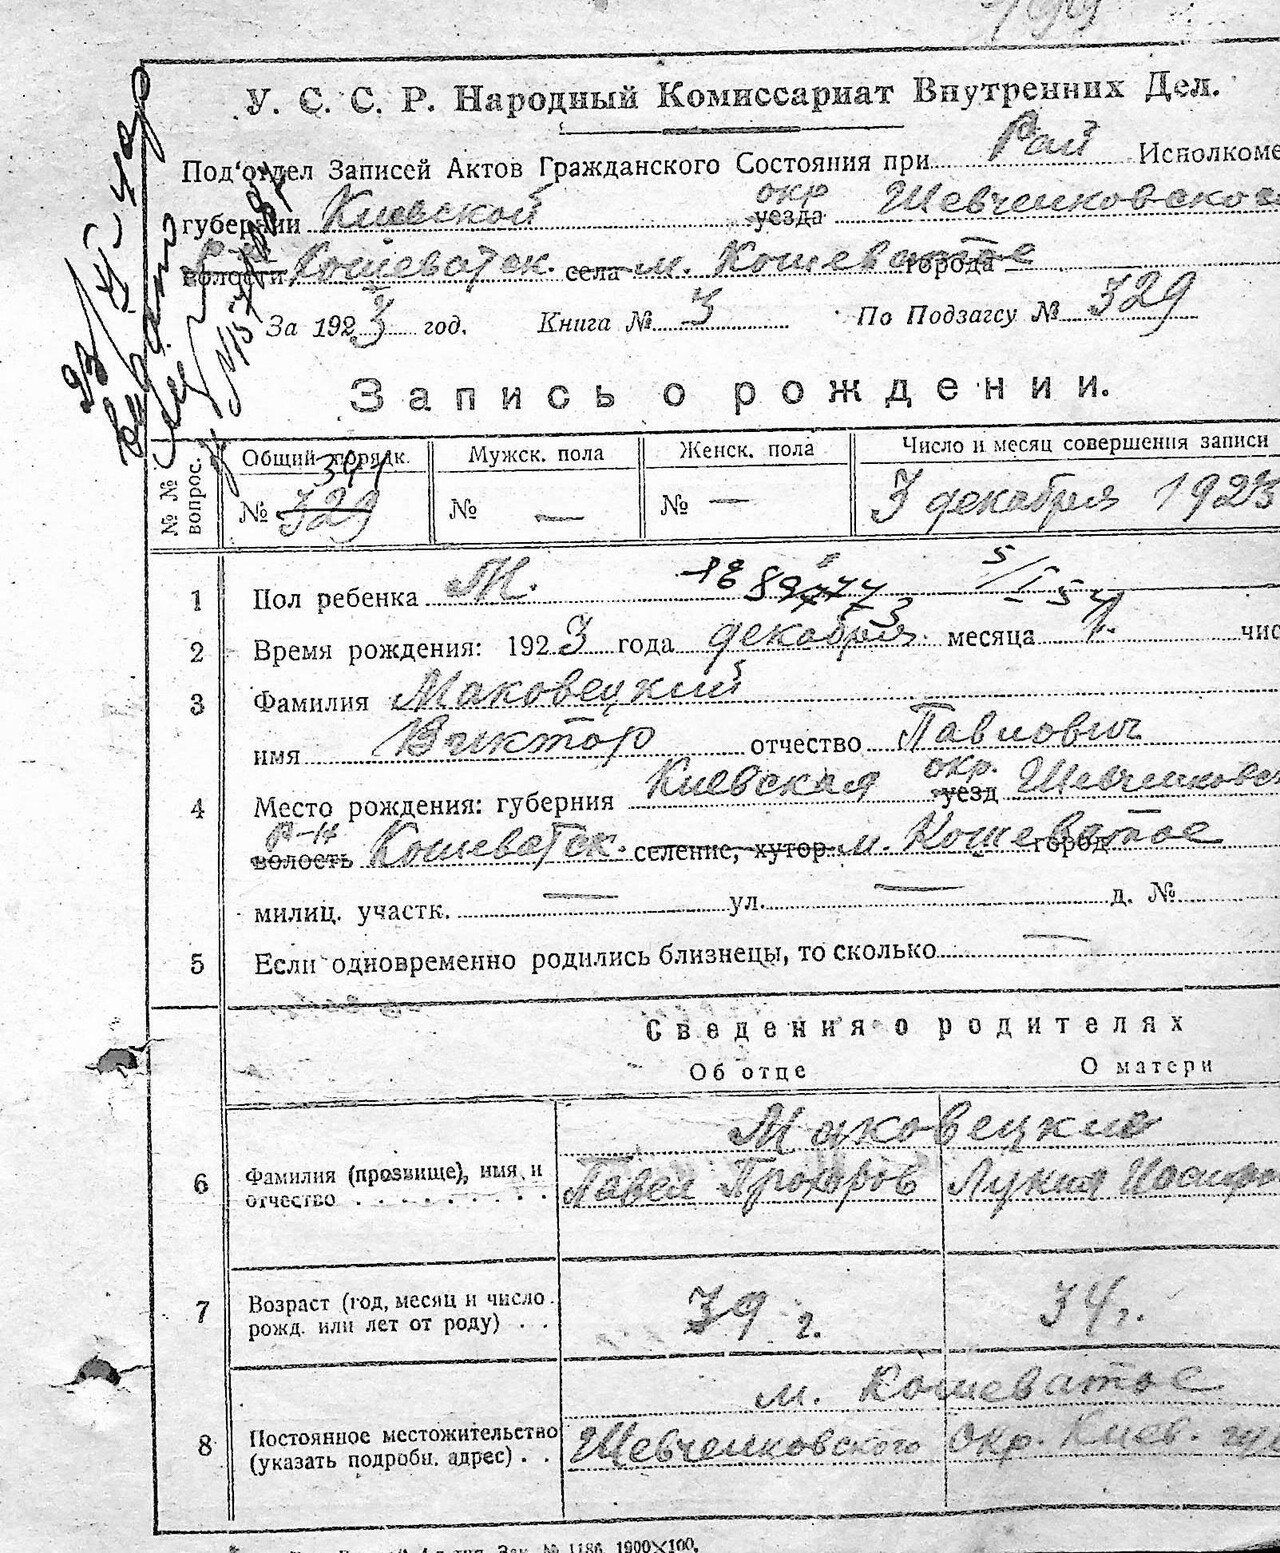 У. С. С. Р. Народный Комиссариат Внутренних Дел.
Под'отдел Записей Актов Гражданского Состояния при Рай Исполкоме
губернии Киевской окр уезда Шевченковского
волости Кошеватск. села м. Кошеватое города
За 1923 год. Книга № 3 По Подзагсу № 329
Запись о рождении.
№ № вопрос.
Общий порядк. Мужск. пола Женск. пола Число и месяц совершения записи
341
№ 329 № — № — 3 декабря 1923
1 Пол ребенка М.
5/I 54
2 Время рождения: 1923 года декабря месяца 1. чис
3 Фамилия Маковецкий
имя Виктор отчество Павлович
4 Место рождения: губерния Киевская окр. уезд Шевченковск
р-н волость Кошеватск. селение, хутор м. Кошеватое город
милиц. участк. — ул. — д. №
5 Если одновременно родились близнецы, то сколько —
Сведения о родителях
Об отце О матери
Маковецкие
6 Фамилия (прозвище), имя и отчество Павел Прохоров Лукия Иосифо
7 Возраст (год, месяц и число рожд. или лет от роду) 39 г. 34 г.
м. Кошеватое
8 Постоянное местожительство (указать подробн. адрес) Шевченковского Окр. Киев. губ
Зак. № 1186 1000×100.